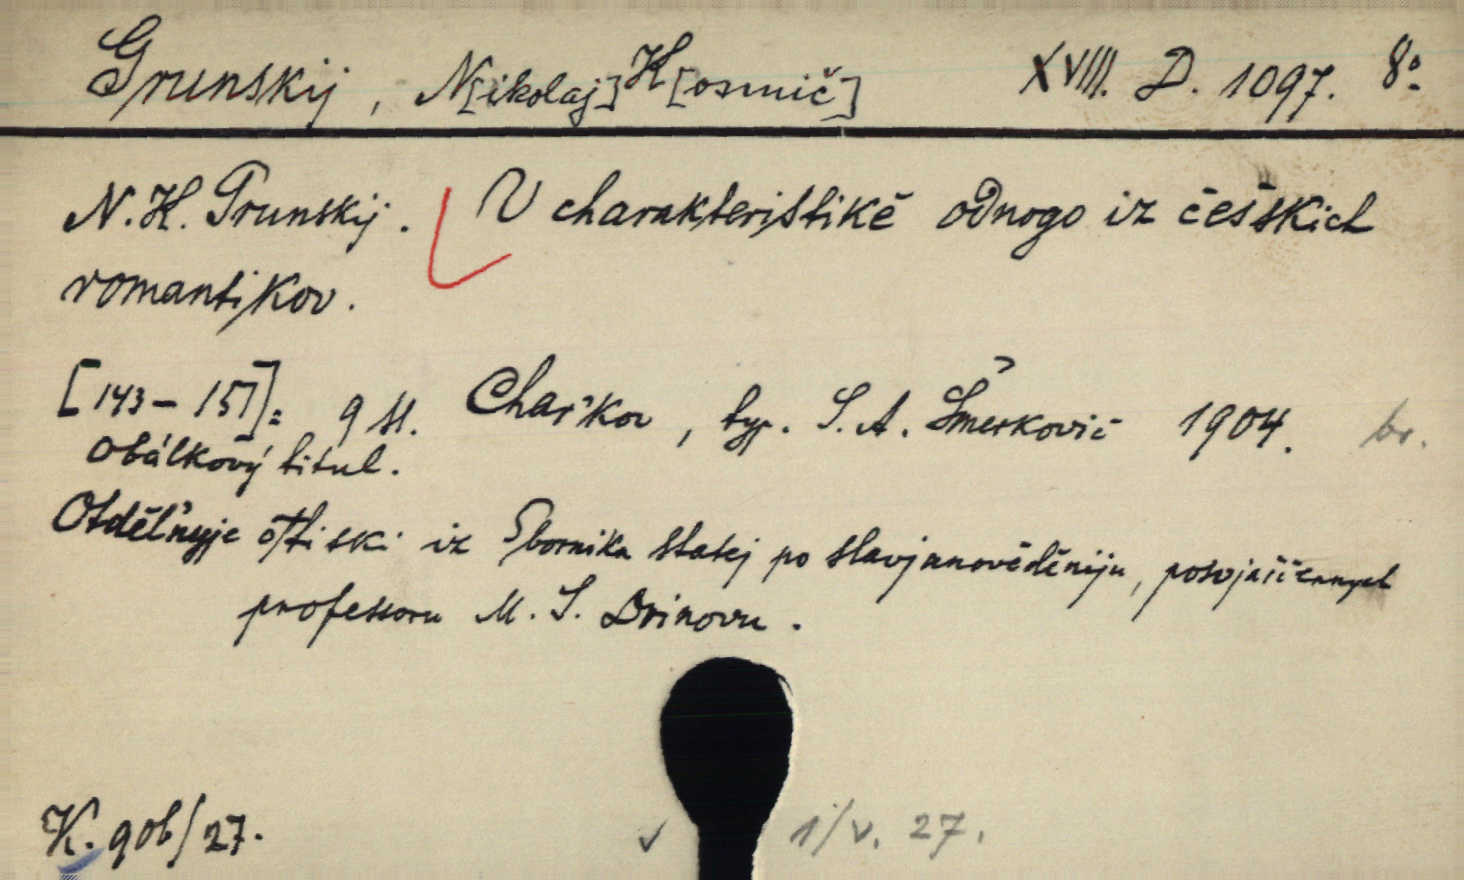 Grunskij, N[ikolaj] K[osmič] XVIII. D. 1097. 8°.
N. K. Grunskij. K charakteristikě odnogo iz češskich
romantikov.
[143-151]= 9 ss. Char'kov, typ. S. A. Šmerkovič 1904. br.
obálkový titul.
Otděl'nyje ottiski iz Sbornika statej po slavjanověděniju, posvjaščennych
professoru M. S. Drinovu.
K. 906/27. 1/V. 27.